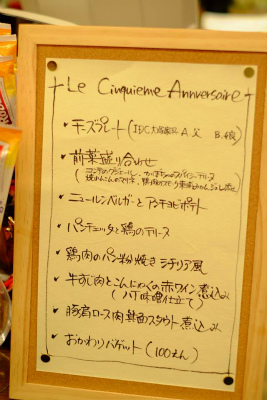 Le Cinquieme Anniversaire
・チーズプレート(IDC大塚家具 A.父 B.娘)
・前菜盛り合わせ
・ニュールンベルガーとアンチョビポテト
・パンチェッタと鶏のテリーヌ
・鶏肉のパン粉焼きシチリア風
・牛すじ肉とこんにゃくの赤ワイン煮込み
(八丁味噌仕立て)
・豚肩ロース肉 箕面スタウト煮込み
・おかわりバゲット(100えん)